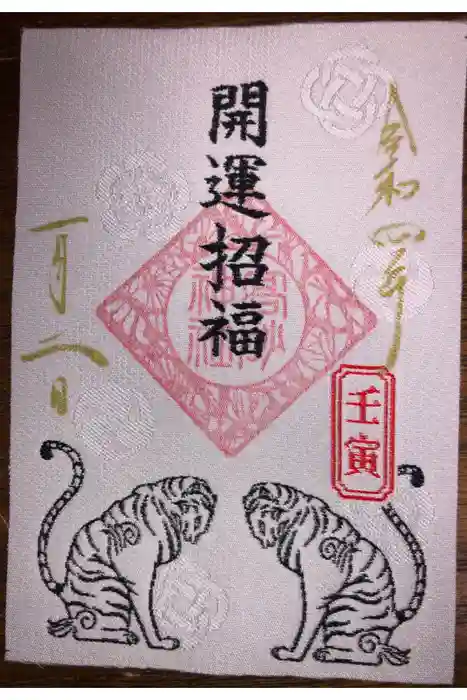 令和四年
開運招福
壬寅
一月二日